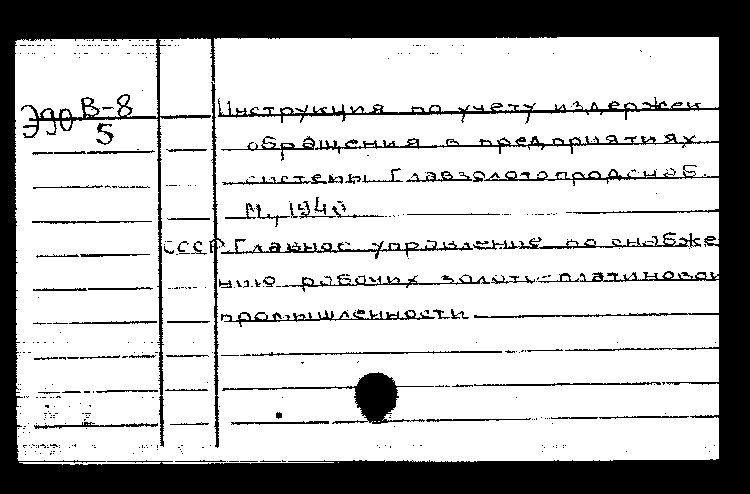 Э90 В-8
5
Инструкция по учету издержек
обращения в предприятиях
системы Главзолотопродснаб.
М., 1940.
СССР. Главное управление по снабже
нию рабочих золото-платиновой
промышленности